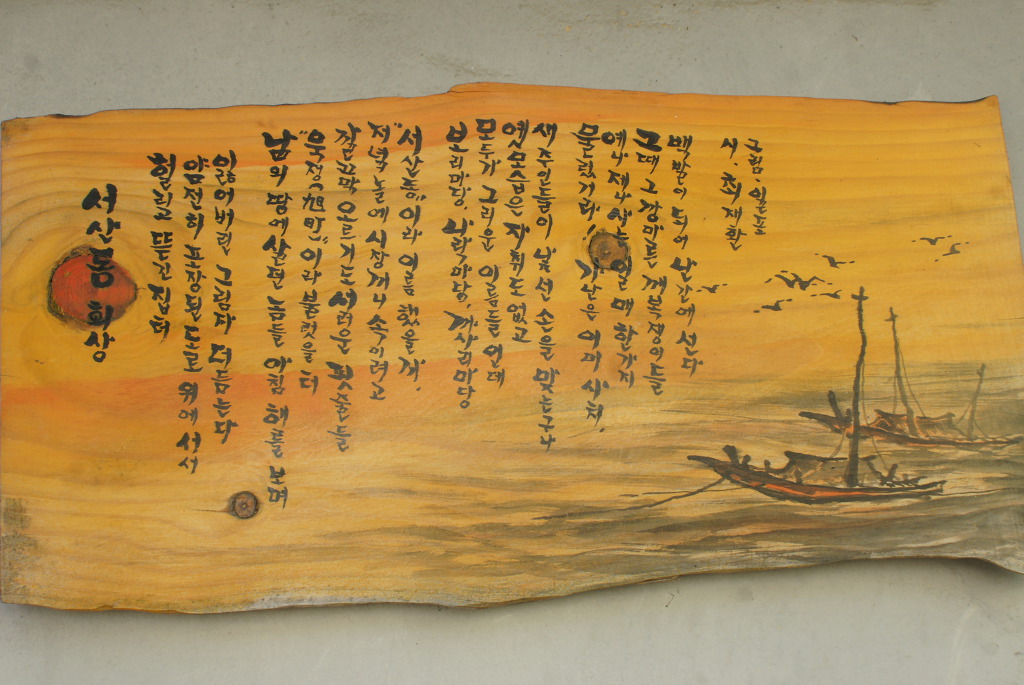 서산동 회상
헐리고 뜯긴 집터
얌전히 포장된 도로 위에 서서
잃어버린 그림자 더듬는다
남의 땅에 살던 놈들 아침 해를 보며
"욱정(旭町)"이라 붙였을 터
깜끄막 오르기도 서러운 핏줄들
저녁놀에 시장끼나 속이려고
"서산동"이라 이름 했을게.
보리마당, 나락마당, 까사리마당
모두가 그리운 이름들 인데
옛 모습은 자취도 없고
새 주인들이 낯선 손을 맞는구나
물렀거라! 가난은 이미 사치,
예나 제나 매 한가지
그때 그 깡마른 깨복쟁이들
백발이 되어 난간에 선다
시. 최재환
그림.